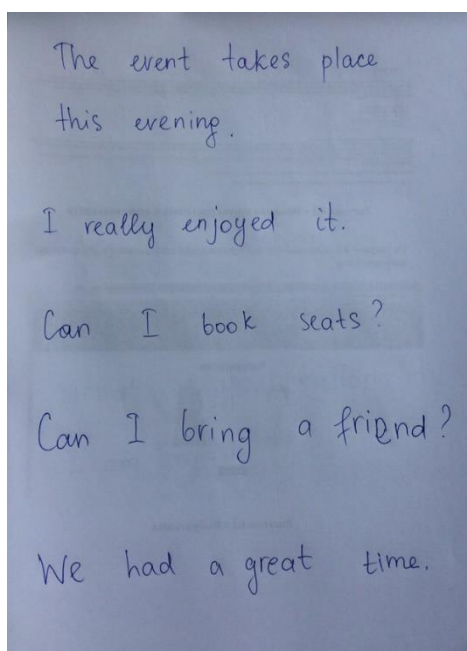 The event takes place
this evening.
I really enjoyed it.
Can I book seats?
Can I bring a friend?
We had a great time.